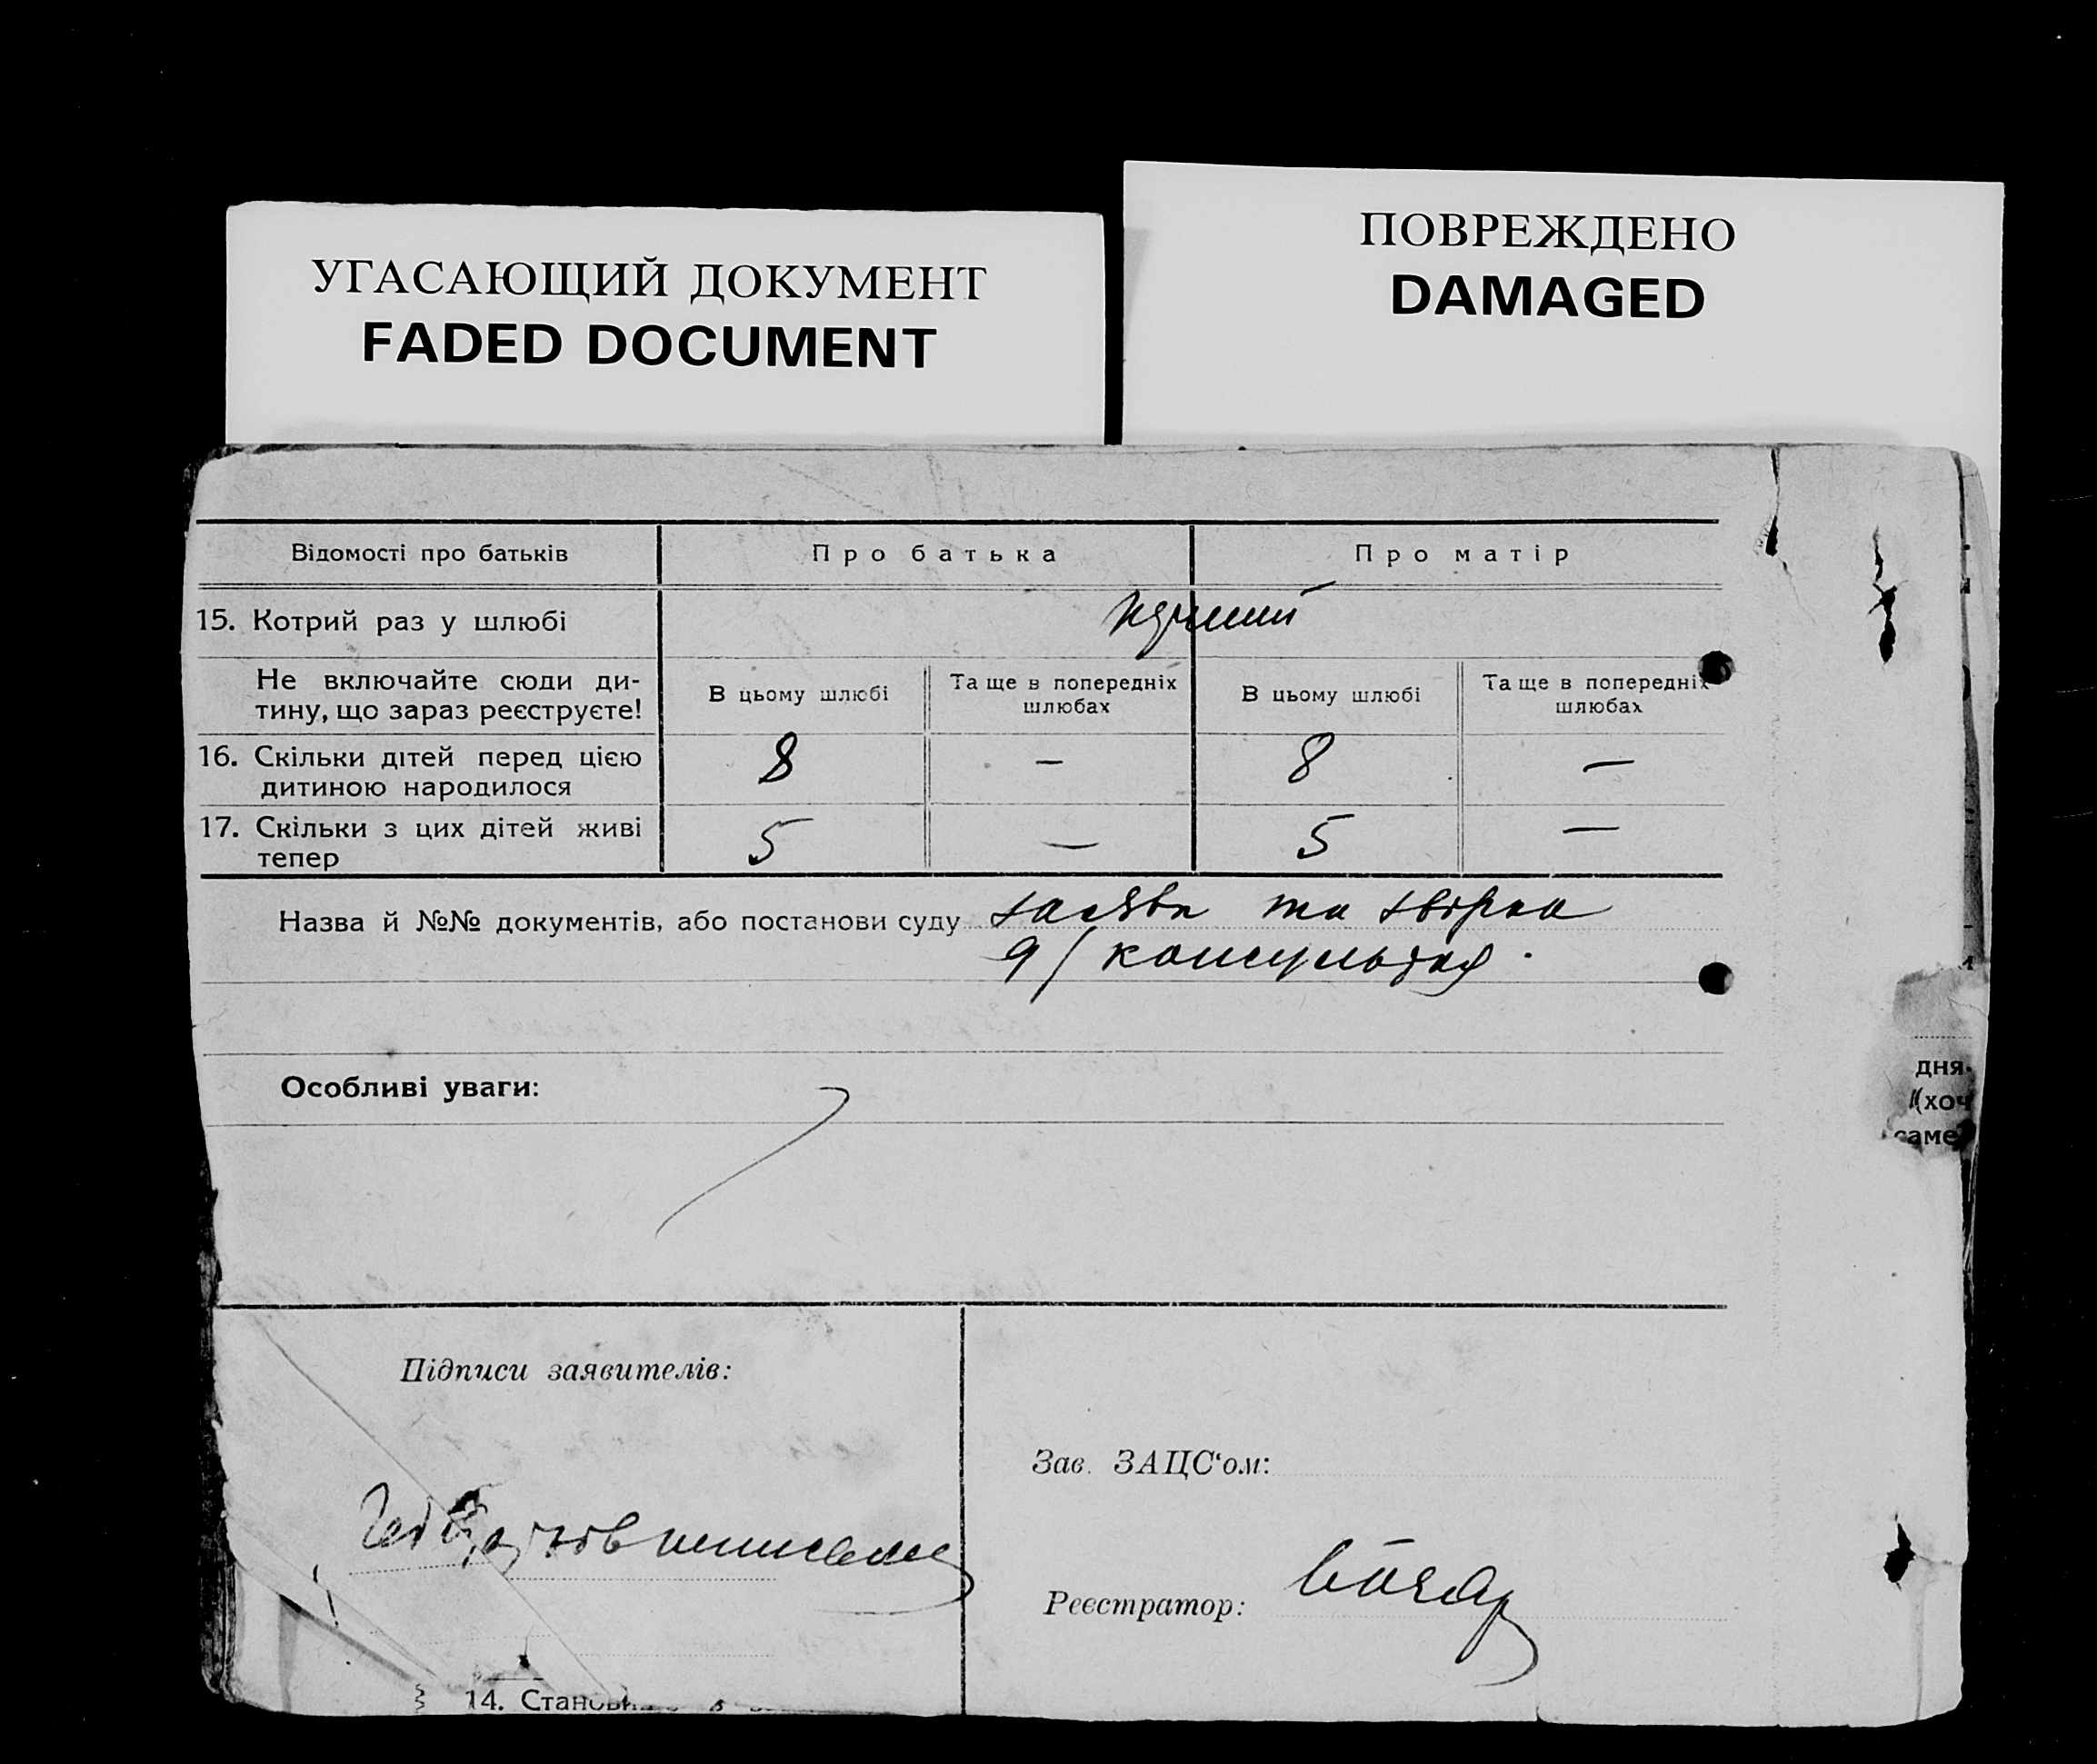 УГАСАЮЩИЙ ДОКУМЕНТ
FADED DOCUMENT
ПОВРЕЖДЕНО
DAMAGED
Відомості про батьків Про батька Про матір
15. Котрий раз у шлюбі перший
Не включайте сюди ди-
тину, що зараз реєструєте!
В цьому шлюбі
Та ще в попередніх
шлюбах
В цьому шлюбі
Та ще в попередніх
шлюбах
16. Скільки дітей перед цією
дитиною народилося
8 — 8 —
17. Скільки з цих дітей живі
тепер
5 — 5 —
Назва й №№ документів, або постанови суду заява та
Особливі уваги:
дня
(хоч
саме
Підписи заявителів:
Зав. ЗАЦС‘ом:
Реєстратор:
14.